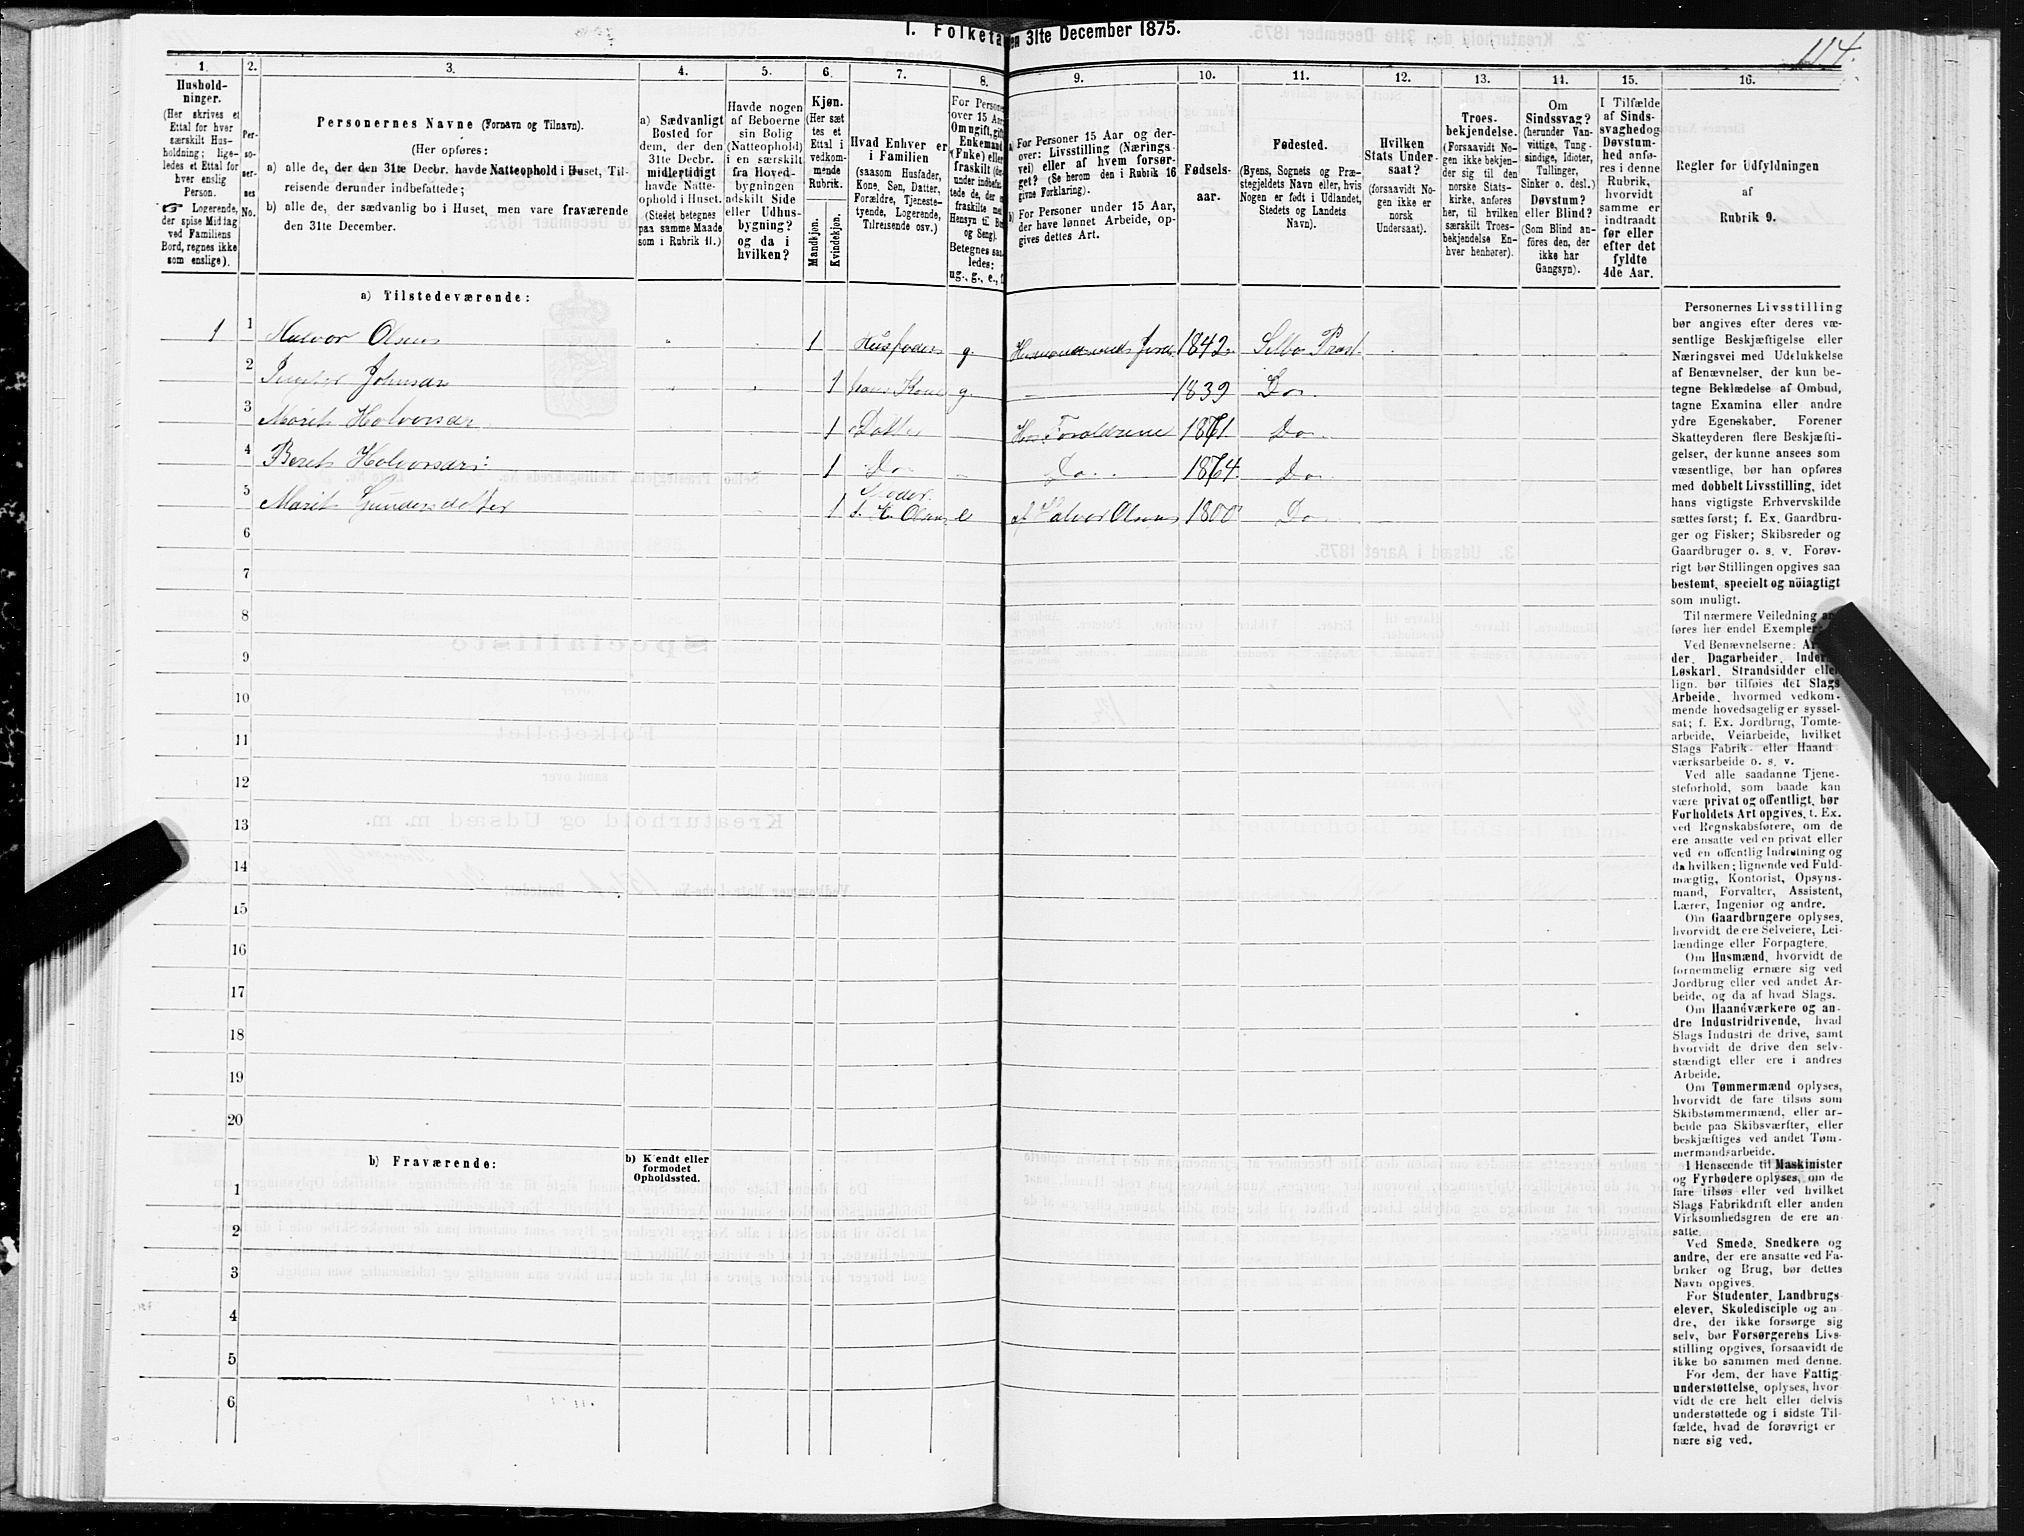 114.
I. Folketa en 31te December 1875.
1. 2. 3. 4. 5. 6. 7. 8. 9. 10. 11. 12. 13. 14. 15. 16.
Hushold-
ninger.
(Her skrives et
Ettal for hver
særskilt Hus-
holdning; lige-
ledes et Ettal for
hver enslig
Person.
☞ Logerende,
der spise Middag
ved Familiens
Bord, regnes ikke
som enslige).
Per-
so-
ner-
nes
No.
Personernes Navne (Fornavn og Tilnavn).
(Her opføres:
a) alle de, der den 31te Decbr. havde Natteophold i Huset, Til-
reisende derunder indbefattede;
b) alle de, der sædvanlig bo i Huset, men vare fraværende
den 31te December.
a) Sædvanligt
Bosted for
dem, der den
31te Decbr.
midlertidigt
havde Natte-
ophold i Huset.
(Stedet betegnes
paa samme Maade
som i Rubrik 11.)
Havde nogen
af Beboerne
sin Bolig
(Natteophold)
i en særskilt
fra Hoved-
bygningen
adskilt Side
eller Udhus-
bygning?
og da i
hvilken?
Kjøn.
(Her sæt
tes et
Ettal i
vedkom-
mende
Rubrik.
Mandkjøn.
Kvindekjøn.
Hvad Enhver er
i Familien
(saasom Husfader,
Kone, Søn, Datter,
Forældre, Tjeneste-
tyende, Logerende,
Tilreisende osv.)
For Persone
over 15 Aar
Om ugift, gift
Enkemand
(Enke) eller
fraskilt
under indbefat
tede de, der
fraskilte
Hensyn til
og Seng).
Betegnes saa-
ledes:
ug., g., e.,
a For Personer 15 Aar og der-
over: Livsstilling (Nærings
vei) eller af hvem forsør-
get? (Se herom den i Rubrik 16
givne Forklaring).
b) For Personer under 15 Aar,
der have lønnet Arbeide, op-
gives dettes Art.
Fødsels-
aar.
Fødested.
(Byens, Sognets og Præ-
stegjeldets Navn eller, hvis
Nogen er født i Udlandet,
Stedets og Landets
Navn).
Hvilken
Stats Under-
saat?
(forsaavidt No-
gen ikke er
norsk
Undersaat).
Troes-
bekjendelse.
(Forsaavidt No-
gen ikke bekjen-
der sig til den
norske Stats-
kirke, anføres
her, til hvilken
særskilt Troes-
bekjendelse En-
hver henhører).
Om
Sindssvag?
(herunder Van-
vittige, Tung-
sindige, Idioter,
Tullinger,
Sinker o. desl.)
Døvstum?
eller Blind?
(Som Blind an-
føres den, der
ikke har
Gangsyn).
I Tilfælde
af Sinds-
svaghed og
Døvstum-
hed anfø-
res i denne
Rubrik,
hvorvidt
samme er
indtraadt
før eller
efter det
fyldte
4de Aar.
Regler for Udfyldningen
af
Rubrik 9.
a) Tilstedeværende:
1 1 Halvor Olsen 1 Husfader g. 1842. Selbo Præst.
2 Johnsdr 1 hans Kone g. 1839 Do.
3 Marit Halvorsdr 1 Datter Hos Forældrene 1861 Do.
4 Berit Halvorsdr: 1 Do Do. 1864. Do.
5 Marit Gundersdatter 1 Moder. e af Halvor Olsen 1800 Do.
6
7
8
9
10
11
12
13
14
15
16
17
18
19
20
b) Fraværende:
b) Kendt eller
formodet
Opholdssted.
1
2
3
4
5
6
Personernes Livsstilling
bør angives efter deres væ-
sentlige Beskjæftigelse eller
Næringsvei med Udelukkelse
af Benævnelser, der kun be-
tegne Beklædelse af Ombud,
tagne Examina eller andre
ydre Egenskaber. Forener
Skatteyderen flere Beskjæfti-
gelser, der kunne ansees som
væsentlige, bør han opføres
med dobbelt Livsstilling, idet
hans vigtigste Erhvervskilde
sættes først; f. Ex. Gaardbru-
ger og Fisker; Skibsreder og
Gaardbruger o. s. v. Forøv-
rigt bør Stillingen opgives saa
bestemt, specielt og nöiagtigt
som muligt.
Til nærmere Veiledning an
føres her endel Exempler:
Ved Benævnelserne: Ar
der, Dagarbeider, Inder
Løskarl, Strandsidder eller
lign. bør tilføies det Slags
Arbeide, hvormed vedkom-
mende hovedsagelig er syssel-
sat; f. Ex. Jordbrug, Tomte-
arbeide, Veiarbeide, hvilket
Slags Fabrik- eller Haand
værksarbeide o. s. v.
Ved alle saadanne Tjene-
steforhold, som baade kan
være privat og offentligt, bør
Forholdets Art opgives, t. Ex.
ved Regnskabsførere, om de
ere ansatte ved en privat eller
ved en offentlig Indretning og
da hvilken; lignende ved Fuld-
mægtig, Kontorist, Opsyns-
mand, Forvalter, Assistent,
Lærer, Ingeniør og andre.
Om Gaardbrugere oplyses,
hvorvidt de ere Selveiere, Lei-
lændinge eller Forpagtere.
Om Husmænd, hvorvidt de
fornemmelig ernære sig ved
Jordbrug eller ved andet Ar-
beide, og da af hvad Slags.
Om Haandværkere og an-
dre Industridrivende, hvad
Slags Industri de drive, samt
hvorvidt de drive den selv-
stændigt eller ere i andres
Arbeide.
Om Tømmermænd oplyses,
hvorvidt de fare tilsøs som
Skibstømmermænd, eller ar-
beide paa Skibsværfter, eller
beskjæftiges ved andet Tøm-
mermandsarbeide.
I Henseende til Maskinister
og Fyrbødere oplyses, om de
fare tilsøs eller ved hvilket
Slags Fabrikdrift eller anden
Virksomhedsgren de ere an-
satte.
Ved Smede, Snedkere og
andre, der ere ansatte ved Fa-
briker og Brug, bør dettes
Navn opgives.
For Studenter, Landbrugs-
elever, Skoledisciple og an-
dre, der ikke forsørge sig
selv, bør Forsørgerens Livs-
stilling opgives, forsaavidt de
ikke bo sammen med denne.
For dem, der have Fattig-
understøttelse, oplyses, hvor-
vidt de ere helt eller delvis
understøttede og i sidste Til-
fælde, hvad de forøvrigt er
nære sig ved.